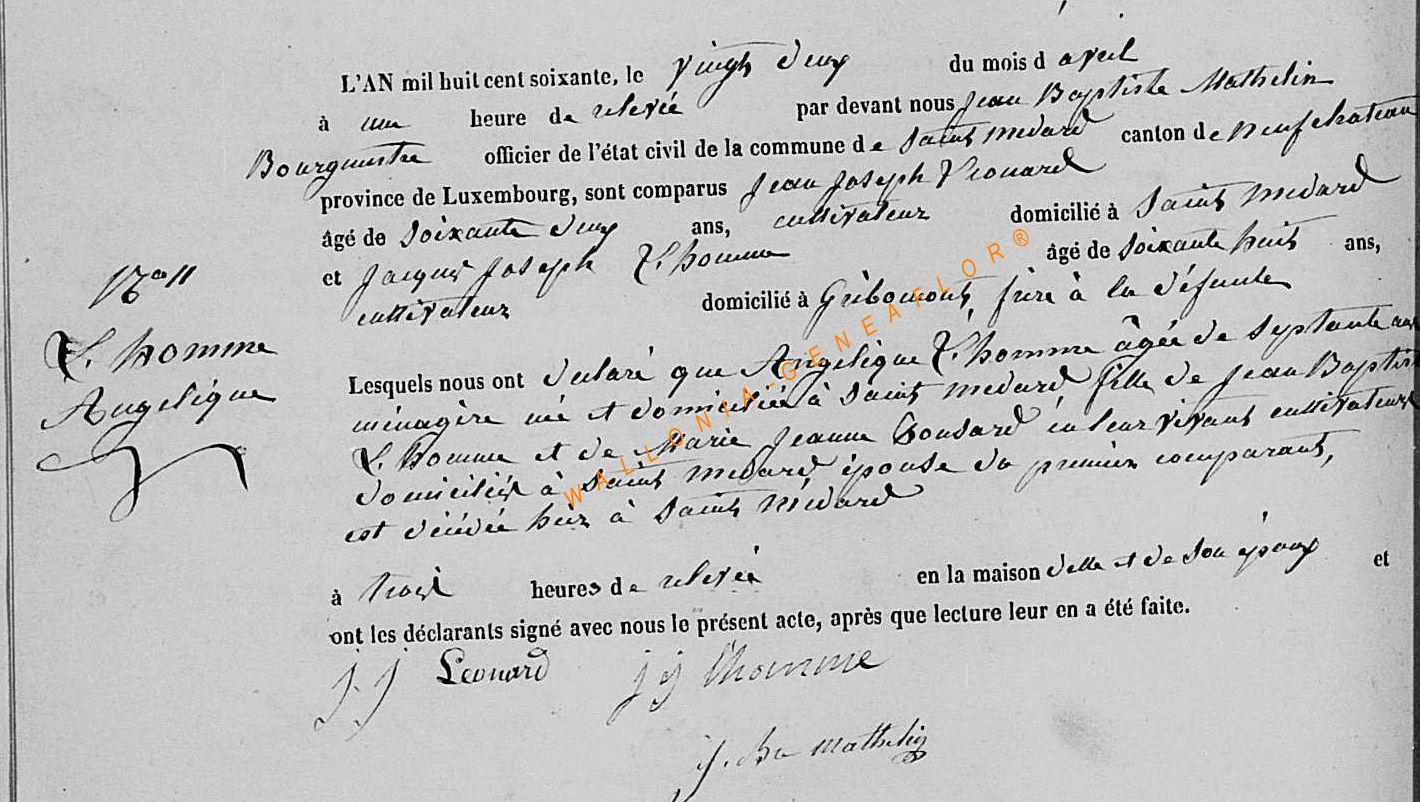 L'AN mil huit cent soixante, le vingt deux du mois d avril
à une heure de relevée par devant nous Jean Baptiste Mathelin
Bourgmestre officier de l'état civil de la commune de Saint médard canton de neufchateau
province de Luxembourg, sont comparus Jean Joseph Léonard
âgé de soixante deux ans, cultivateur domicilié à Saint médard
et Jacques Joseph L'homme âgé de soixante huit ans,
cultivateur domicilié à Gribomont, frère à la défunte
N° 11
L'homme
Angelique
Lesquels nous ont déclaré que Angelique L'homme âgée de septante ans
ménagère née et domiciliée à Saint médard, fille de Jean Baptiste
L'homme et de Marie Jeanne en leur vivant cultivateurs
domiciliés à Saint médard épouse du premier comparant,
est décédée hier à Saint médard
à trois heures de relevée en la maison d'elle et de son époux et
ont les déclarants signé avec nous le présent acte, après que lecture leur en a été faite.
j. j Léonard j j lhomme
j. Bte Mathelin
WALLONIA-GENEAFLOR®